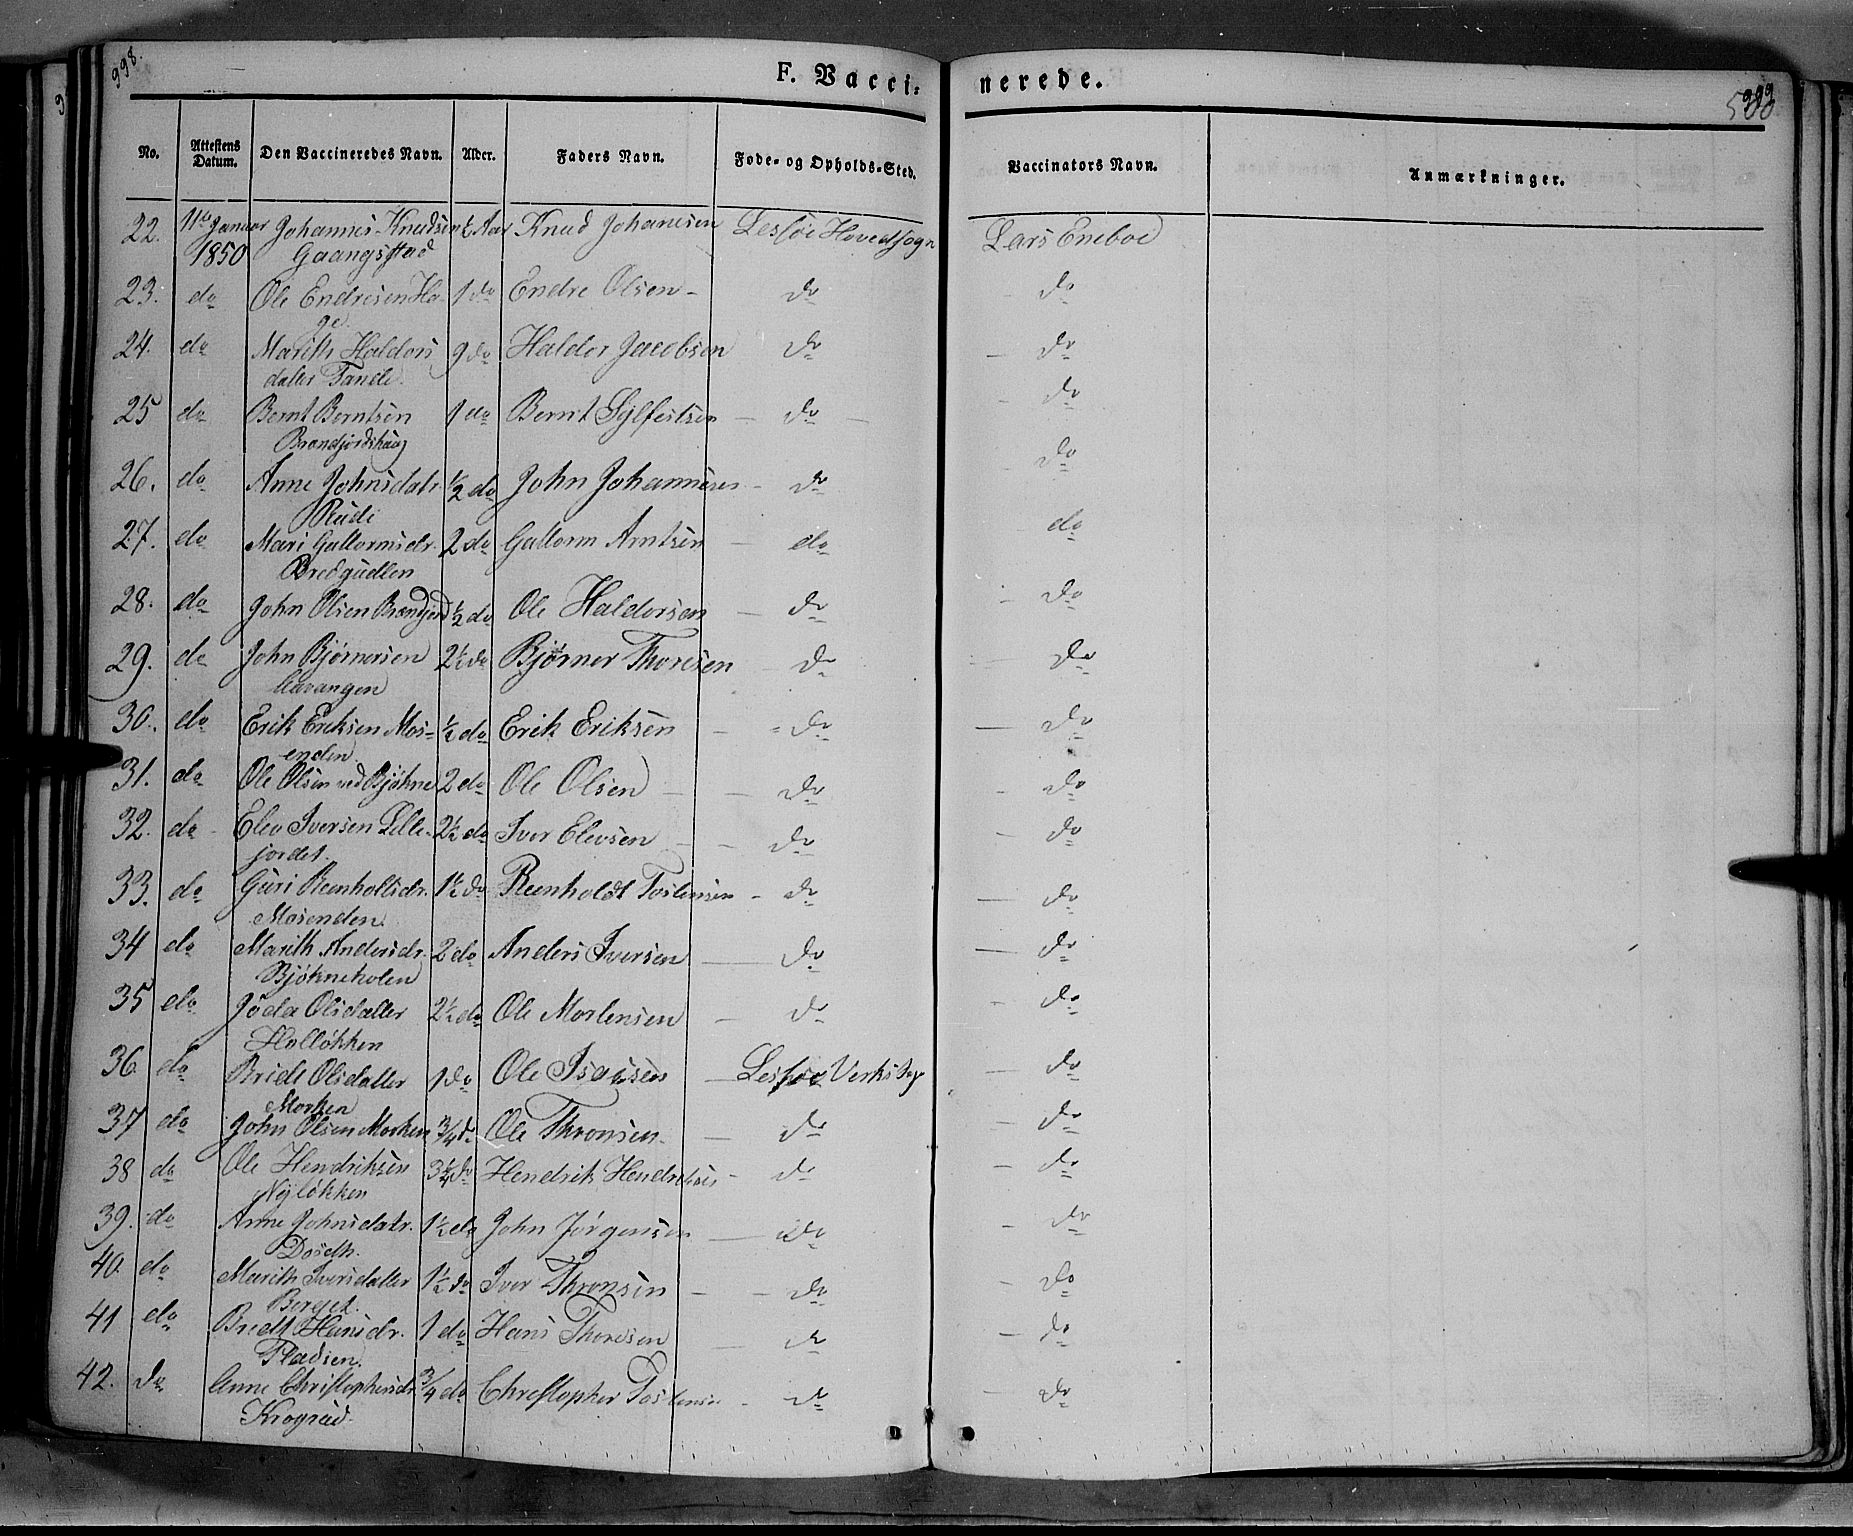 998.
F. Vacci-
nerede.
999
500
No.
Attestens Datum.
Den Vaccineredes Navn.
Alder.
Faders Navn.
Føde- og Opholds-Sted.
Vaccinators Navn.
Anmærkninger.
22. 11te Januar Johannes Knudsen ½ Aar Knud Johanesen Lessøe Hovedsogn Lars Eneboe
1850 Gaangstad
23. do Ole Endresen Ha- 1 do Endre Olsen - do - do
ge.
24. do Marith Haldors 9 do Haldor Jacobsen do - do
datter Tande.
25 do Bernt Berntsen 1 do Bernt Sylfestsen - do - do
Brændjordshaug
26. do Anne Johnsdatr. ½ do John Johannesen - do - do
Rudi
27. do Mari Guttormsdr. 2 do Guttorm Arntsen - do do
Bredquellen
28. do John Olsen Brændjord ½ do Ole Haldorsen - do - do
29. do John Bjørnersen 2½ do Bjørner Thoresen - do - do
Aavangen
30. do Erik Eriksen Mos- ½ do Erik Eriksen - do - do
enden
31. do Ole Olsen ved Bjøkne 2 do Ole Olsen - - do - do
32. do Elev Iversen Lille- 2½ do Iver Elevsen - - do - do
jordet.
33. do Guri Reenholtsdr. 1½ do Reenholdt Tostensen - do - do
Mosenden
34 do Marith Andersdr. 2 do Anders Iversen - do - do
Bjøkneholen
35 do Joda Olsdatter 2½ do Ole Mortensen - do - do
Holløkken
36. do Bride Olsdatter 1 do Ole Isaksen - Lessøe Verks Sogn - do
Morken
37 do John Olsen Morken ¾ do Ole Thronsen - do - do
38 do Ole Hendriksen 3¼ do Hendrik Hendriksen - do - do
Nyløkken
39. do Anne Johnsdatr. 1½ do John Jørgensen - do - do
Doseth.
40. do Marith Iversdatter 1½ do Iver Thronsen - - do - do
Berget.
41 do Bredt Hansdr. 1 do Hans Thoresen - do - do
Pladsen.
42. do Anne Christophersdr. ¾ do Christopher Tostensen - do - do
Krogrud.